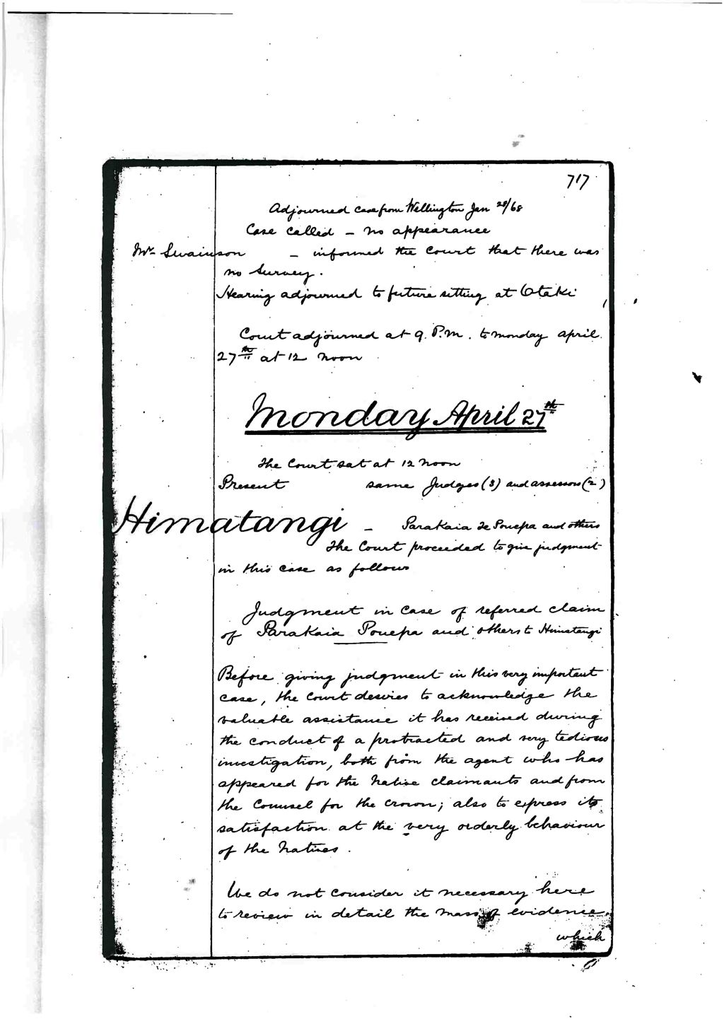 717
Adjourned case from Wellington Jan 28/68
Case called – no appearance
Mr Swainson – informed the Court that there was
no Survey.
Hearing adjourned to future sitting at Otaki
Court adjourned at 9. P.M. to monday april
27th at 12 noon
Monday April 27th
The Court sat at 12 noon
Present same Judges (3) and assessors (2)
Himatangi – Parakaia Te Pouepa and others
The Court proceeded to give judgment
in this case as follows
Judgment in case of referred claim
of Parakaia Pouepa and others to Himatangi
Before giving judgment in this very important
case, the Court desires to acknowledge the
valuable assistance it has received during
the conduct of a protracted and very tedious
investigation, both from the agent who has
appeared for the Native claimants and from
the Counsel for the crown; also to express its
satisfaction at the very orderly behaviour
of the Natives.
We do not consider it necessary here
to review in detail the mass of evidence
which